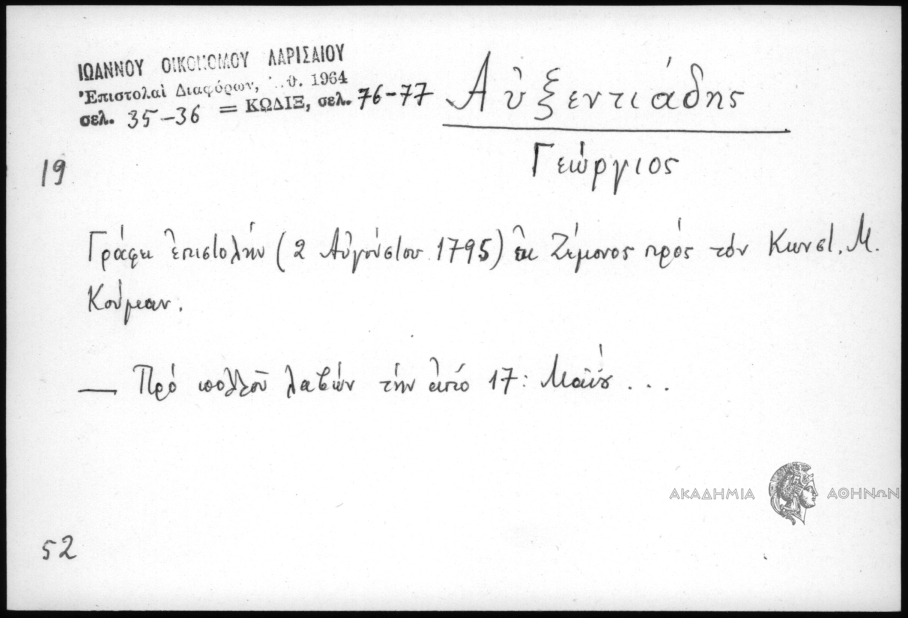 ΙΩΑΝΝΟΥ ΟΙΚΟΝΟΜΟΥ ΛΑΡΙΣΑΙΟΥ
Ἐπιστολαὶ Διαφόρων, 1964
σελ. 35-36 = ΚΩΔΙΞ, σελ. 76-77
Αὐξεντιάδης
Γεώργιος
19
Γράφει ἐπιστολήν (2 Αὐγούστου 1795) ἐκ Ζέμονος πρός τόν Κωνστ. Μ.
Κούμαν.
— Πρό πολλοῦ λαβών τήν ἀπό 17: Μαΐου ...
ΑΚΑΔΗΜΙΑ ΑΘΗΝΩΝ
52